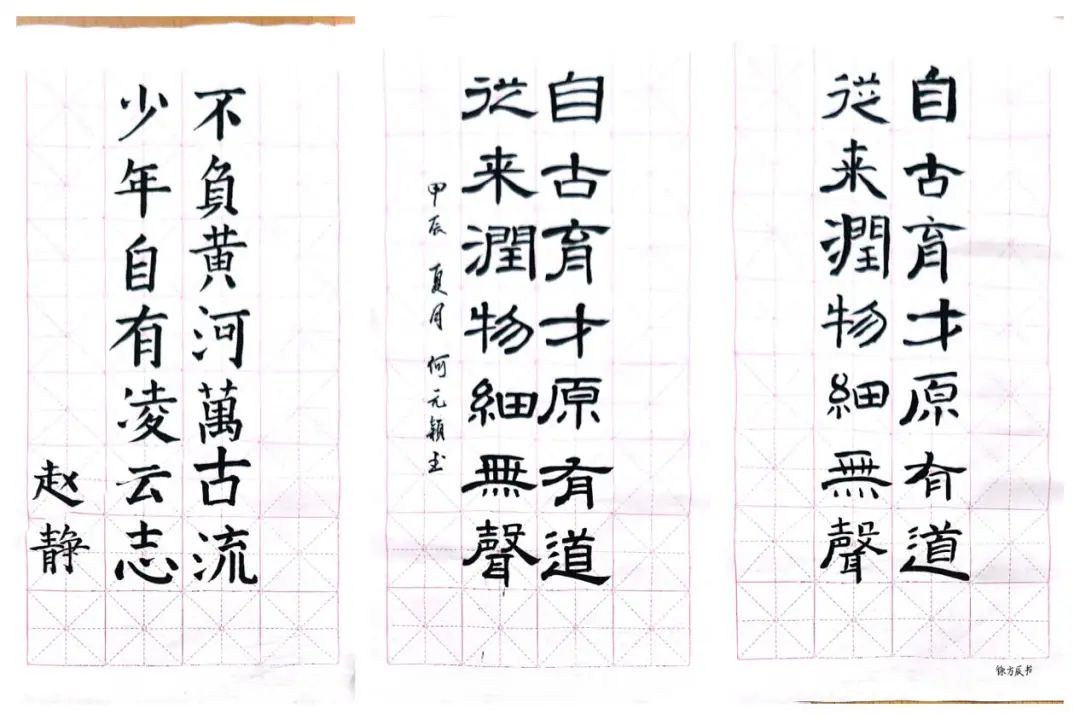 不負黃河萬古流
少年自有凌云志
赵静
自古育才原有道
從来潤物細無聲
甲辰 夏月 何元颖书
自古育才原有道
從来潤物細無聲
方辰书